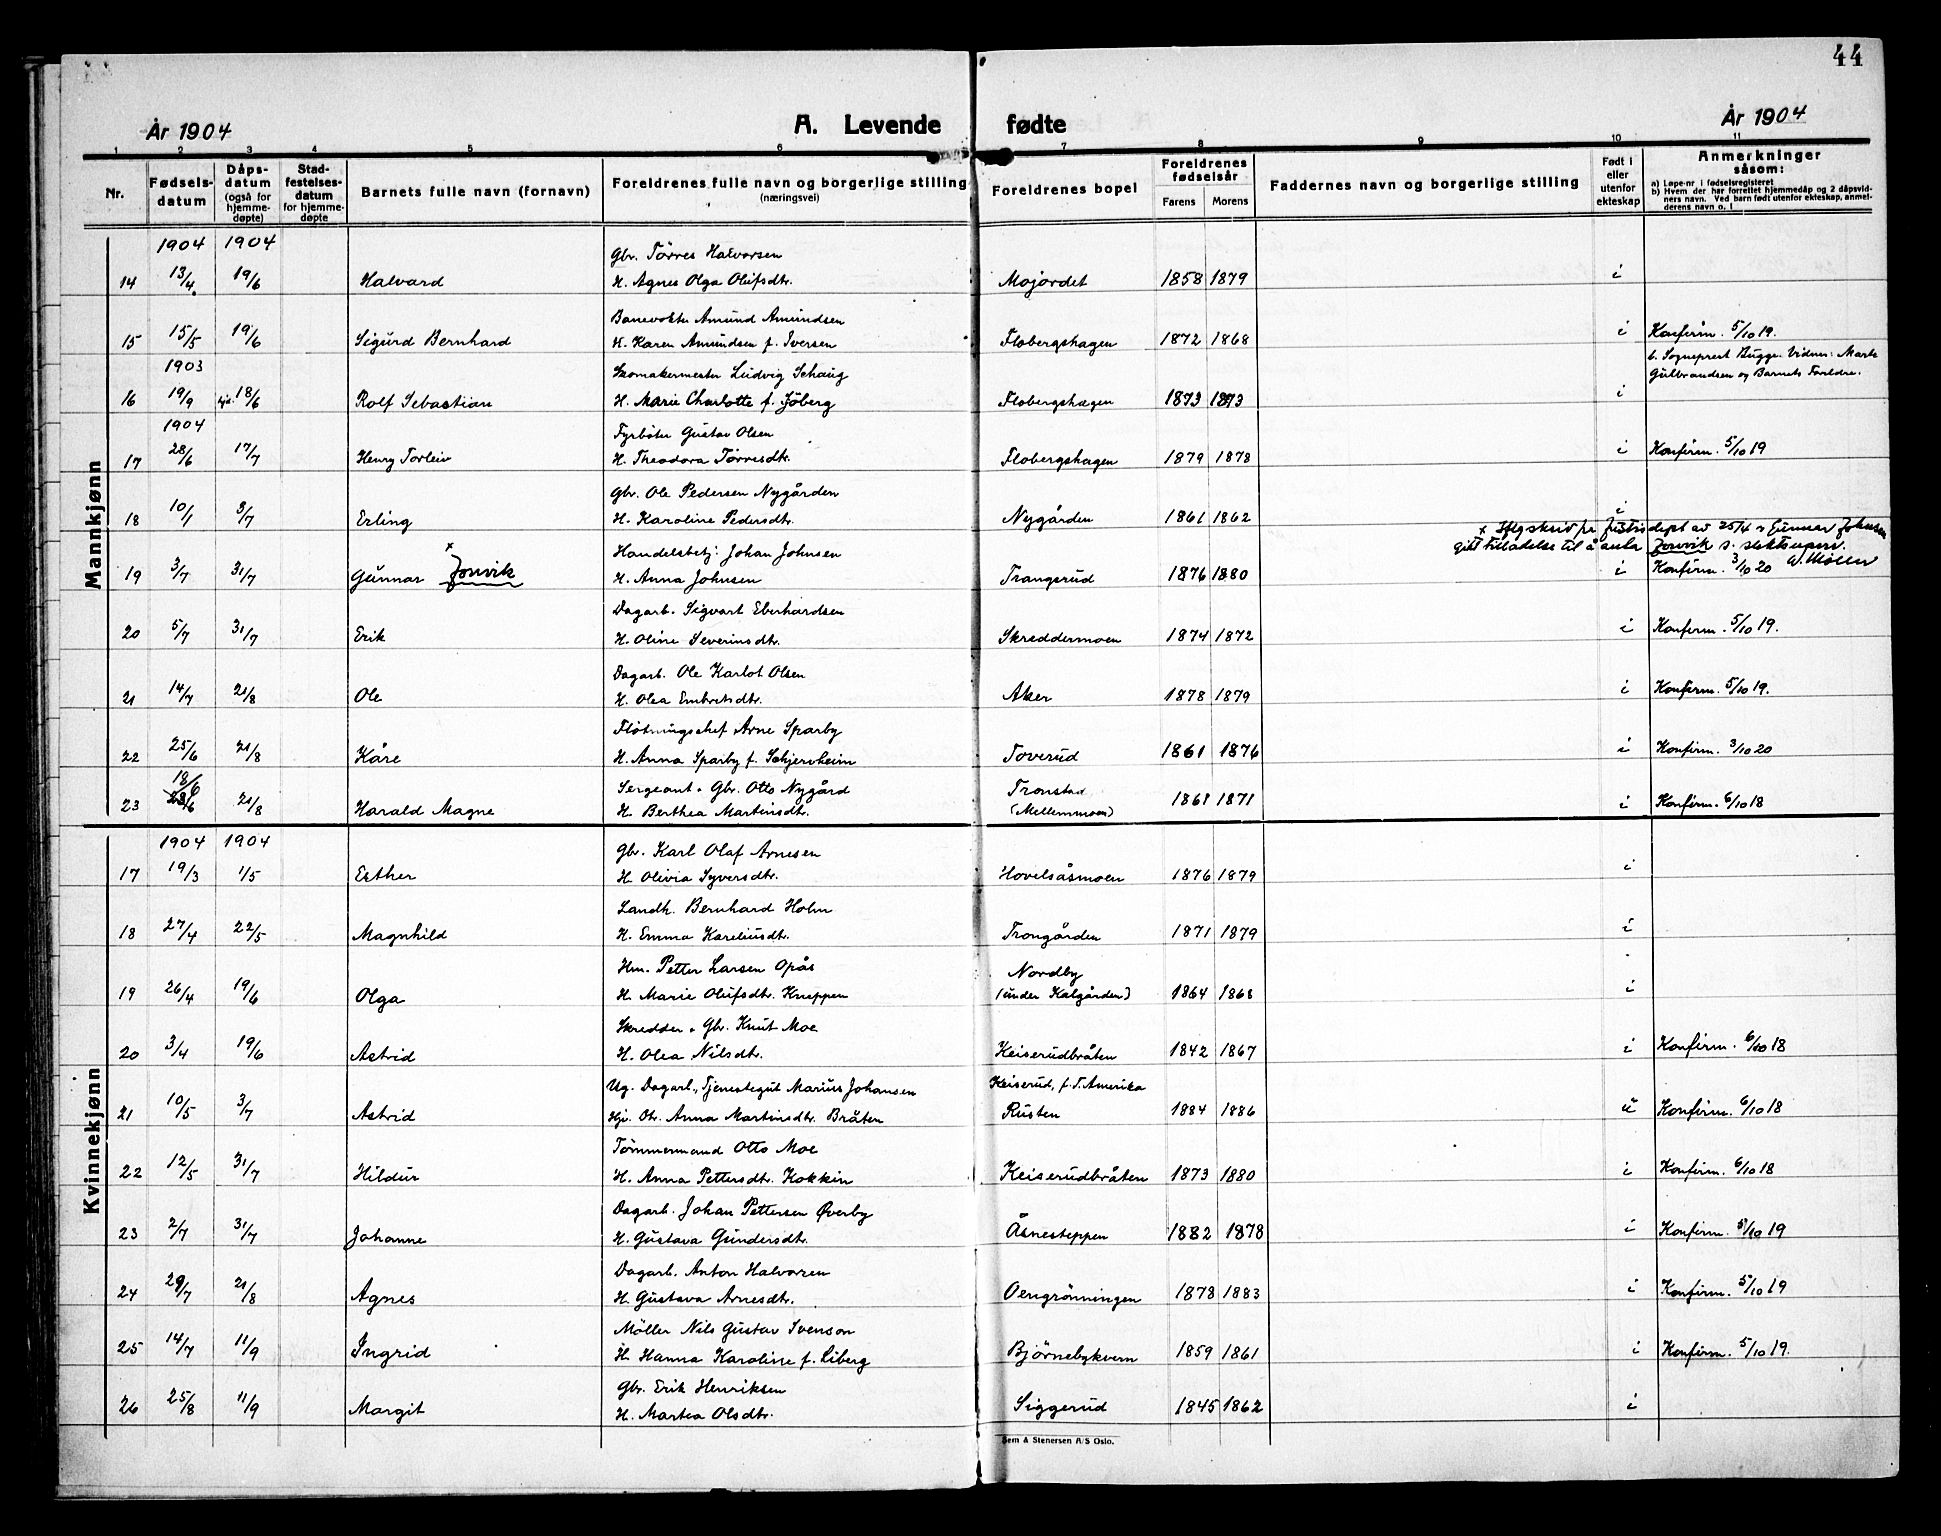 44
År 1904 A. Levende fødte År 1904
1 2 3 4 5 6 7 8 9 10 11
Nr. Fødsels-datum Dåps-datum (også for hjemme-døpte) Stad-festelses-datum for hjemme-døpte Barnets fulle navn (fornavn) Foreldrenes fulle navn og borgerlige stilling (næringsvei) Foreldrenes bopel Foreldrenes fødselsår Farens Morens Faddernes navn og borgerlige stilling Født i eller utenfor ekteskap Anmerkninger såsom:
a) Løpe-nr i fødselsregisteret
b) Hvem der har forrettet hjemmedåp og 2 dåpsvidners navn. Ved barn født utenfor ekteskap, anmelderens navn o. l.
Mannkjønn
1904 1904 Gbr. Tørres Halvorsen
14 13/4 19/6 Halvard H. Agnes Olga Olufsdtr. Mojordet 1858 1879 i
Banevokter Amund Amundsen
15 15/5 19/6 Sigurd Bernhard H. Karen Amundsen f. Iversen Flobergshagen 1872 1868 i Konfirm. 5/10 19.
1903 Skomakermester Ludvig Schaug b. Sogneprest Bugge. Vidner: Marte
Gulbrandsen og Barnets Foreldre.
16 19/9 hjd. 18/6 Rolf Sebastian H. Marie Charlotte f. Sjøberg Flobergshagen 1873 1873 i
1904 Fyrbøter Gustav Olsen
17 28/6 17/7 Henry Torleiv H. Theodora Tørresdtr. Flobergshagen 1879 1878 i Konfirm. 5/10 19
Gbr. Ole Pedersen Nygården
18 10/1 3/7 Erling H. Karoline Pedersdtr. Nygården 1861 1862 i
x Iflg skriv fra Justisdept av 25/4 er Gunnar Johnsen
gitt tilladelse til å anta Jonvik s. slektsnavn.
W. Møller
Handelsbetj. Johan Johnsen
19 3/7 31/7 Gunnar x Jonvik H. Anna Johnsen Trangsrud 1876 1880 i Konfirm. 3/10 20
Dagarb. Sigvart Eberhardsen
20 5/7 31/7 Erik H. Oline Severinsdtr. Skreddermoen 1874 1872 i Konfirm. 5/10 19.
Dagarb. Ole Karlot Olsen
21 14/7 21/8 Ole H. Olea Embretsdtr. Aker 1878 1879 i Konfirm. 5/10 19.
Fløtningschef Arne Sparby
22 25/6 21/8 Kåre H. Anna Sparby f. Schjervheim Toverud 1861 1876 i Konfirm. 3/10 20
18/6 Sergeant & Gbr. Otto Nygård Tronstad
23 28/6 21/8 Harald Magne H. Berthea Martinsdtr. (Mellemmoen) 1861 1871 i Konfirm. 6/10 18
Kvinnekjønn
1904 1904 Gbr. Karl Olaf Arnesen
17 19/3 1/5 Esther H. Olivia Syversdtr. Hovelsåsmoen 1876 1879 i
Landh. Bernhard Holm
18 27/4 22/5 Magnhild H. Emma Kareliusdtr. Trongården 1871 1879 i
Hm. Petter Larsen Opås Nordby
19 26/4 19/6 Olga H. Marie Olufsdtr. Kneppen (under Kalgården) 1864 1868 i
Skredder & Gbr. Knut Moe
20 3/4 19/6 Astrid H. Olea Nilsdtr. Keiserudbråten 1842 1867 i Konfirm. 6/10 18
Ug. Dagarb., Tjenestegut Marius Johansen Keiserud, f. T. Amerika
21 10/5 3/7 Astrid Pi. Anna Martinsdtr. Bråten Rusten 1884 1886 u Konfirm. 6/10 18
Tømmermand Otto Moe
22 12/5 31/7 Hildur H. Anna Pettersdtr. Kokkin Keiserudbråten 1873 1880 i Konfirm. 6/10 18
Dagarb. Johan Pettersen Øverby
23 2/7 31/7 Johanne H. Gustava Gundersdtr. Åsnesteppen 1882 1878 i Konfirm. 5/10 19
Dagarb. Anton Halvorsen
24 29/7 21/8 Agnes H. Gustava Arnesdtr. Oengrønningen 1878 1883 i Konfirm. 5/10 19
Møller Nils Gustav Svenson
25 14/7 11/9 Ingrid H. Hanna Karoline f. Liberg Bjørnebykvern 1859 1861 i Konfirm. 5/10 19.
Gbr. Erik Henriksen
26 25/8 11/9 Margit H. Martea Olsdtr. Siggerud 1845 1862 i
Sem & Stenersen A/S Oslo.